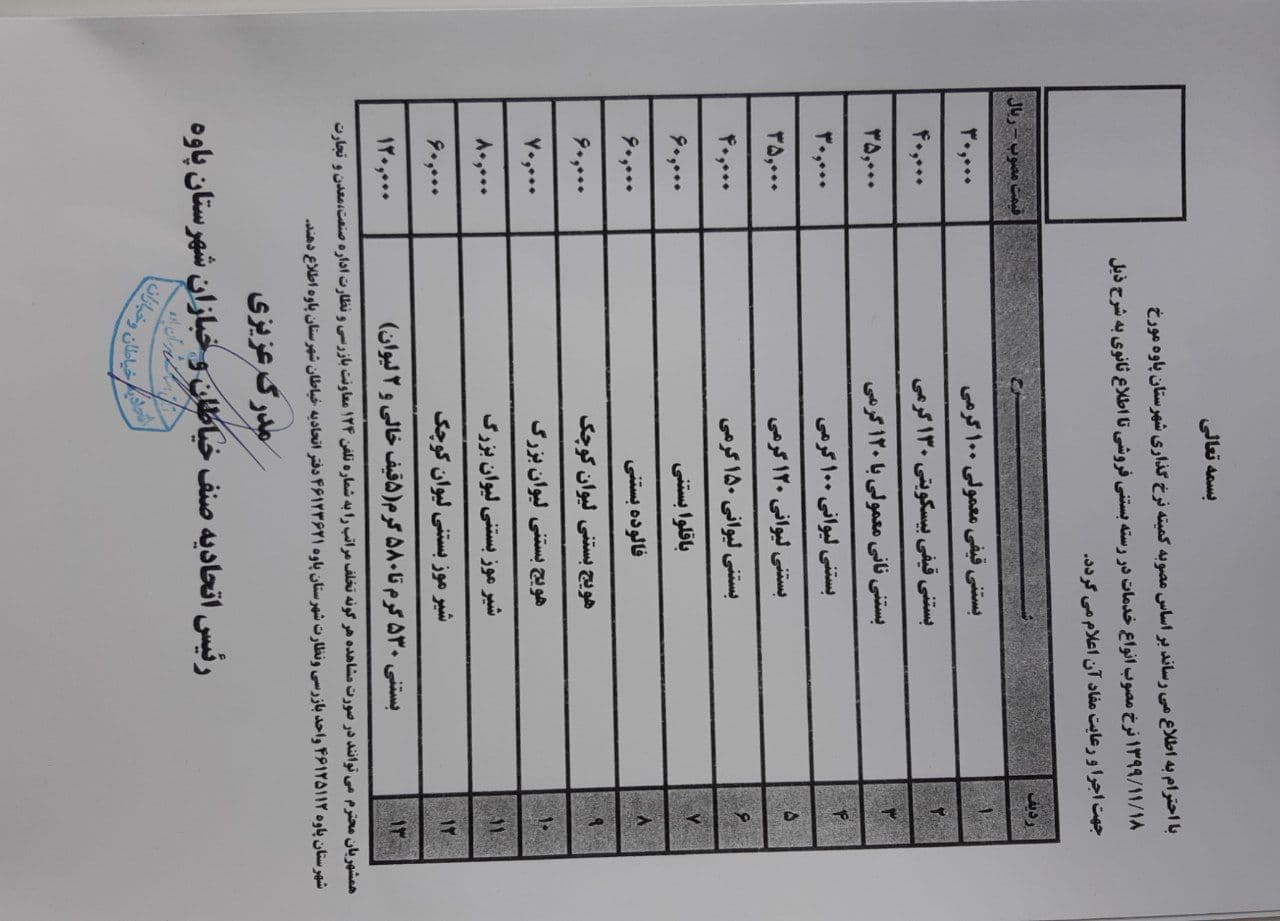 بسمه تعالی
با احترام به اطلاع می رساند بر اساس مصوبه کمیته نرخ گذاری شهرستان پاوه مورخ
۱۳۹۹/۱۱/۱۸ نرخ مصوب انواع خدمات در رسته بستنی فروشی تا اطلاع ثانوی به شرح ذیل
جهت اجرا و رعایت مفاد آن اعلام می گردد.
ردیف شـــــرح قیمت مصوب – ریال
۱ بستنی قیفی معمولی ۱۰۰ گرمی ۳۰,۰۰۰
۲ بستنی قیفی بیسکویتی ۱۳۰ گرمی ۴۰,۰۰۰
۳ بستنی نانی معمولی با ۱۲۰ گرمی ۳۵,۰۰۰
۴ بستنی لیوانی ۱۰۰ گرمی ۳۰,۰۰۰
۵ بستنی لیوانی ۱۲۰ گرمی ۳۵,۰۰۰
۶ بستنی لیوانی ۱۵۰ گرمی ۴۰,۰۰۰
۷ باقلوا بستنی ۶۰,۰۰۰
۸ فالوده بستنی ۶۰,۰۰۰
۹ هویج بستنی لیوان کوچک ۶۰,۰۰۰
۱۰ هویج بستنی لیوان بزرگ ۷۰,۰۰۰
۱۱ شیر موز بستنی لیوان بزرگ ۸۰,۰۰۰
۱۲ شیر موز بستنی لیوان کوچک ۶۰,۰۰۰
۱۳ بستنی ۵۳۰ گرم تا ۵۸۰ گرم(۵قیف خالی و ۲ لیوان) ۱۲۰,۰۰۰
همشهریان محترم می توانند در صورت مشاهده هر گونه تخلف مراتب را به شماره تلفن ۱۲۴ معاونت بازرسی و نظارت اداره صنعت،معدن و تجارت
شهرستان پاوه ۴۶۱۲۵۱۱۲ واحد بازرسی ونظارت شهرستان پاوه ۴۶۱۲۳۶۲۱ دفتر اتحادیه خیاطان شهرستان پاوه اطلاع دهند.
مدرک عزیزی
رئیس اتحادیه صنف خیاطان و خبازان شهرستان پاوه
اتحادیه خیاطان و خبازان